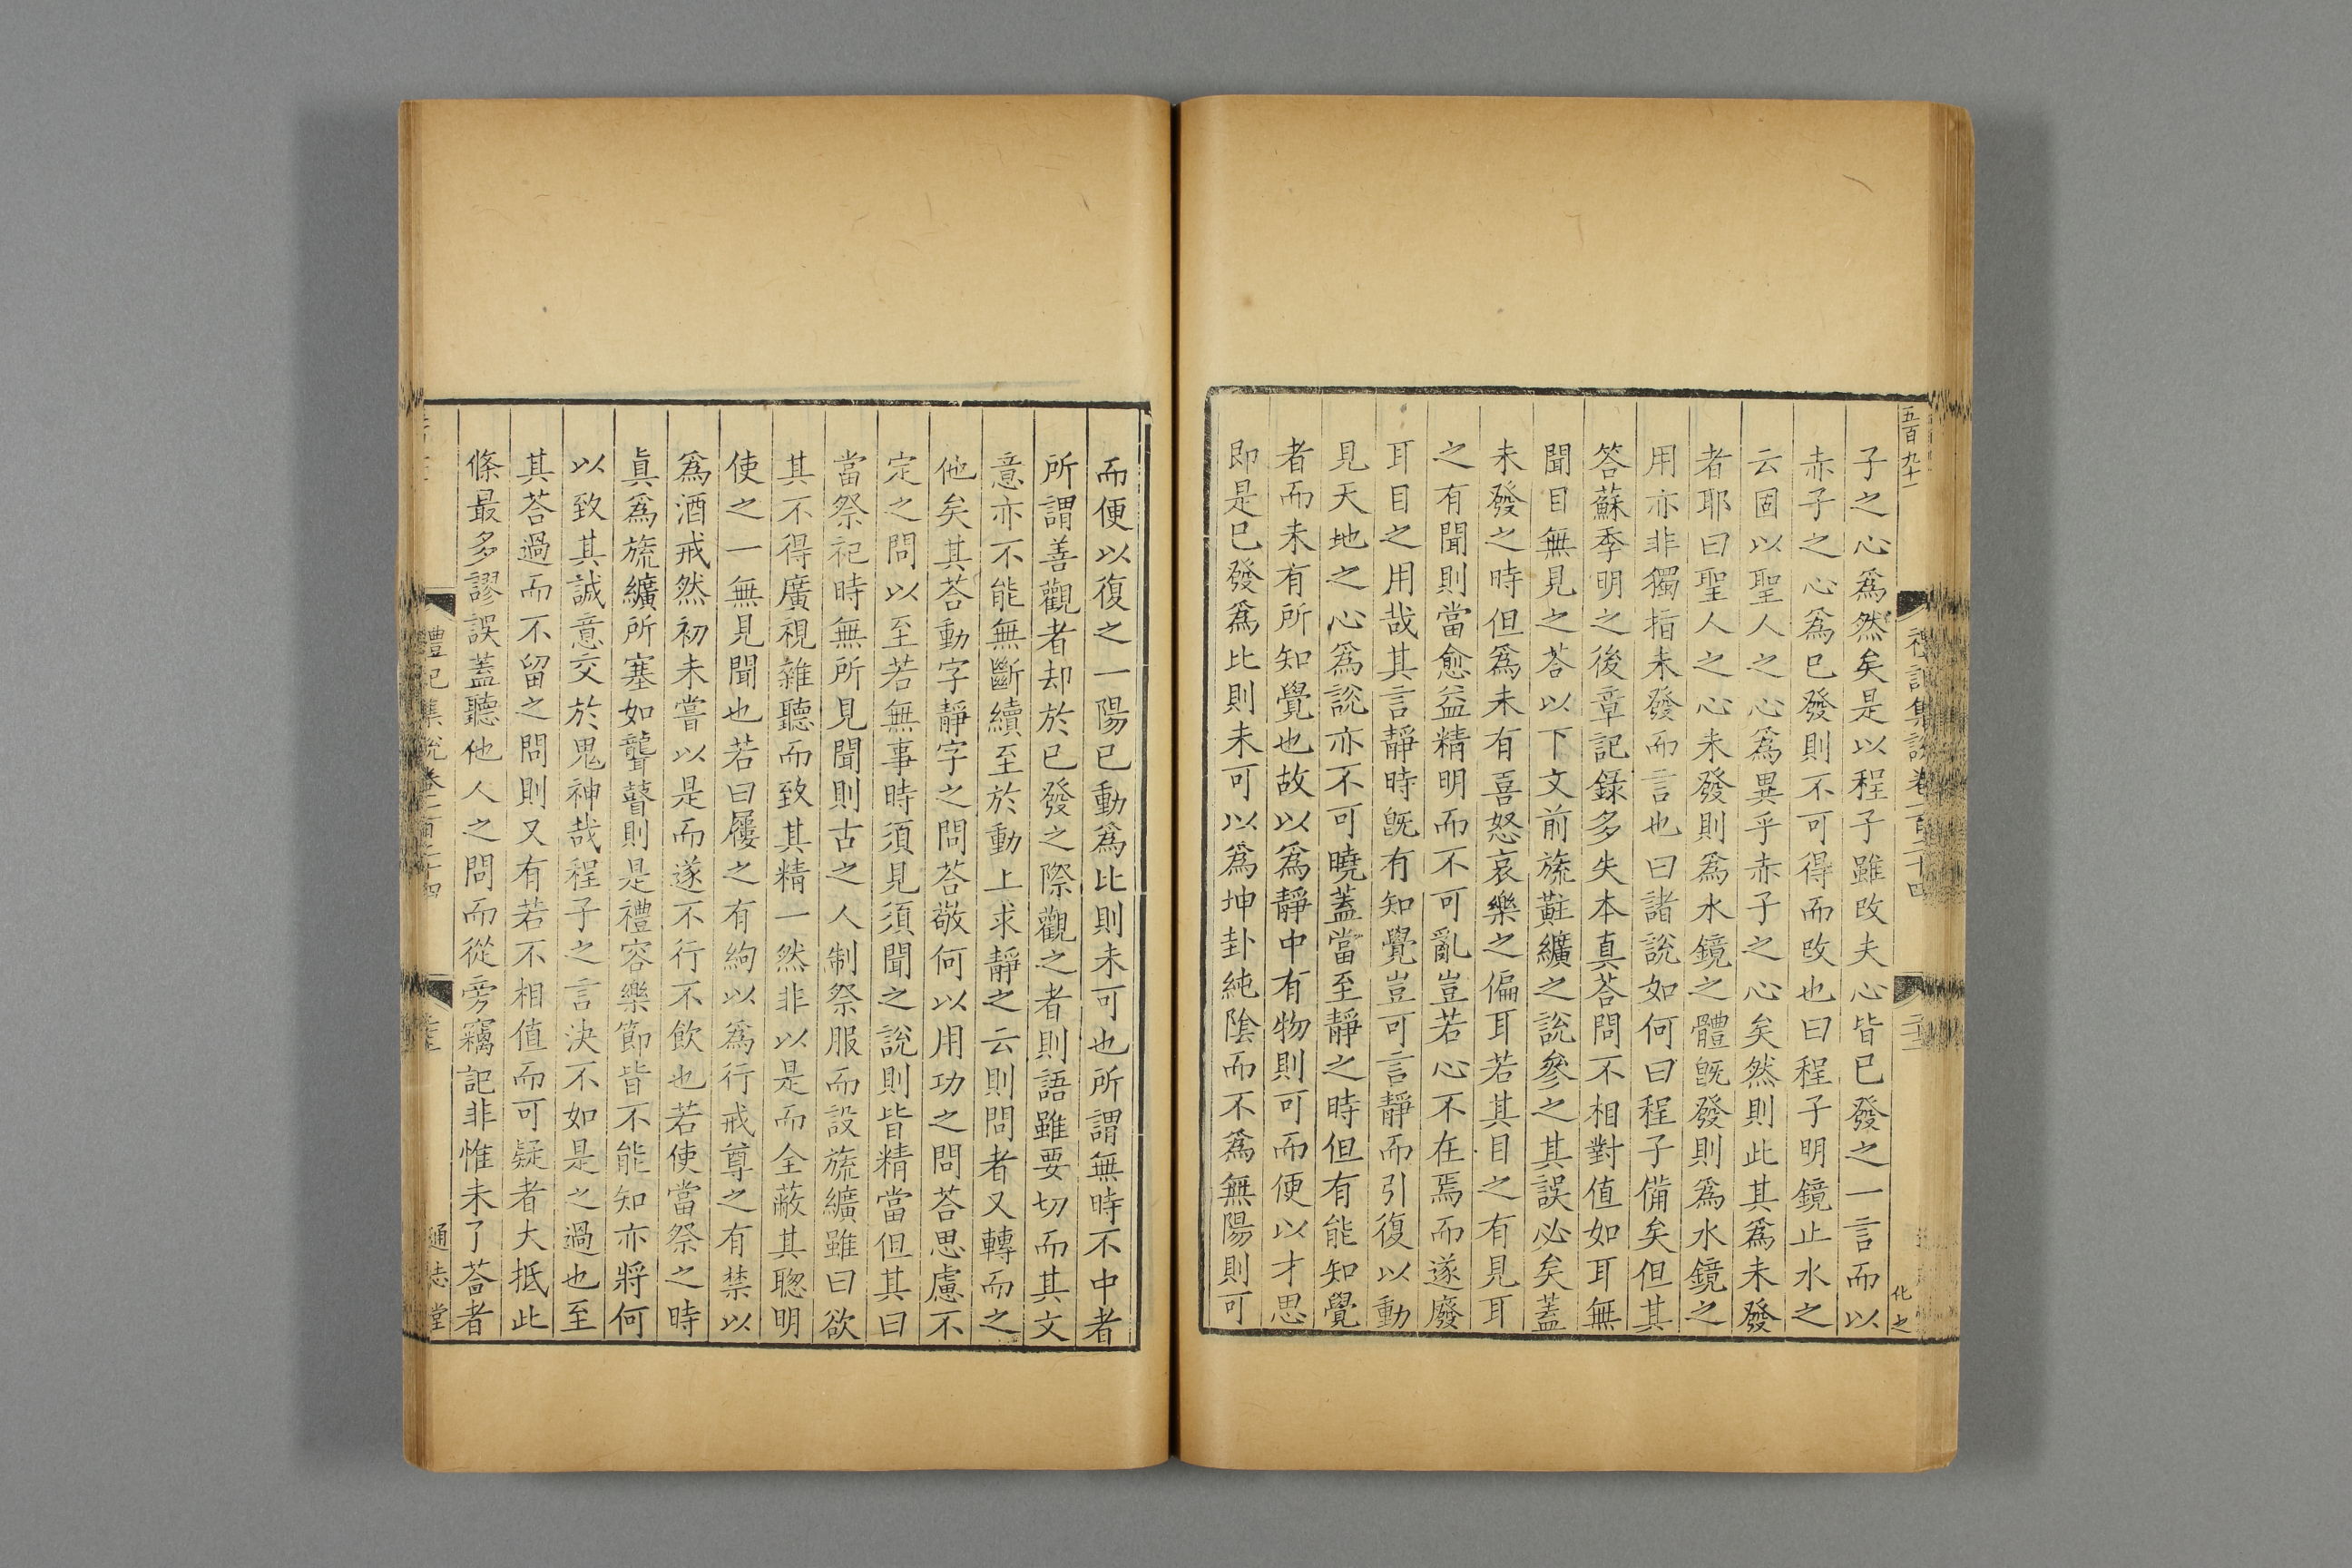 五百九十一
禮記集說卷一百二十四
化之
子之心爲然矣是以程子雖改夫心皆已發之一言而以
赤子之心爲已發則不可得而改也曰程子明鏡止水之
云固以聖人之心爲異乎赤子之心矣然則此其爲未發
者耶曰聖人之心未發則爲水鏡之體旣發則爲水鏡之
用亦非獨指未發而言也曰諸說如何曰程子備矣但其
答蘇季明之後章記錄多失本真荅問不相對值如耳無
聞目無見之荅以下文前旒黈纊之說參之其誤必矣蓋
未發之時但爲未有喜怒哀樂之偏耳若其目之有見耳
之有聞則當愈益精明而不可亂豈若心不在焉而遂廢
耳目之用哉其言靜時旣有知覺豈可言靜而引復以動
見天地之心爲說亦不可曉蓋當至靜之時但有能知覺
者而未有所知覺也故以爲靜中有物則可而便以才思
即是已發爲比則未可以爲坤卦純陰而不爲無陽則可
而便以復之一陽已動爲比則未可也所謂無時不中者
所謂善觀者却於已發之際觀之者則語雖要切而其文
意亦不能無斷續至於動上求靜之云則問者又轉而之
他矣其荅動字靜字之問荅敬何以用功之問荅思慮不
定之問以至若無事時須見須聞之說則皆精當但其曰
當祭祀時無所見聞則古之人制祭服而設旒纊雖曰欲
其不得廣視雜聽而致其精一然非以是而全蔽其聰明
使之一無見聞也若曰屨之有絇以爲行戒尊之有禁以
爲酒戒然初未嘗以是而遂不行不飲也若使當祭之時
真爲旒纊所塞如聾瞽則是禮容樂節皆不能知亦將何
以致其誠意交於鬼神哉程子之言決不如是之過也至
其荅過而不留之問則又有若不相值而可疑者大抵此
條最多謬誤蓋聽他人之問而從旁竊記非惟未了荅者
禮記集說卷一百二十四
通志堂